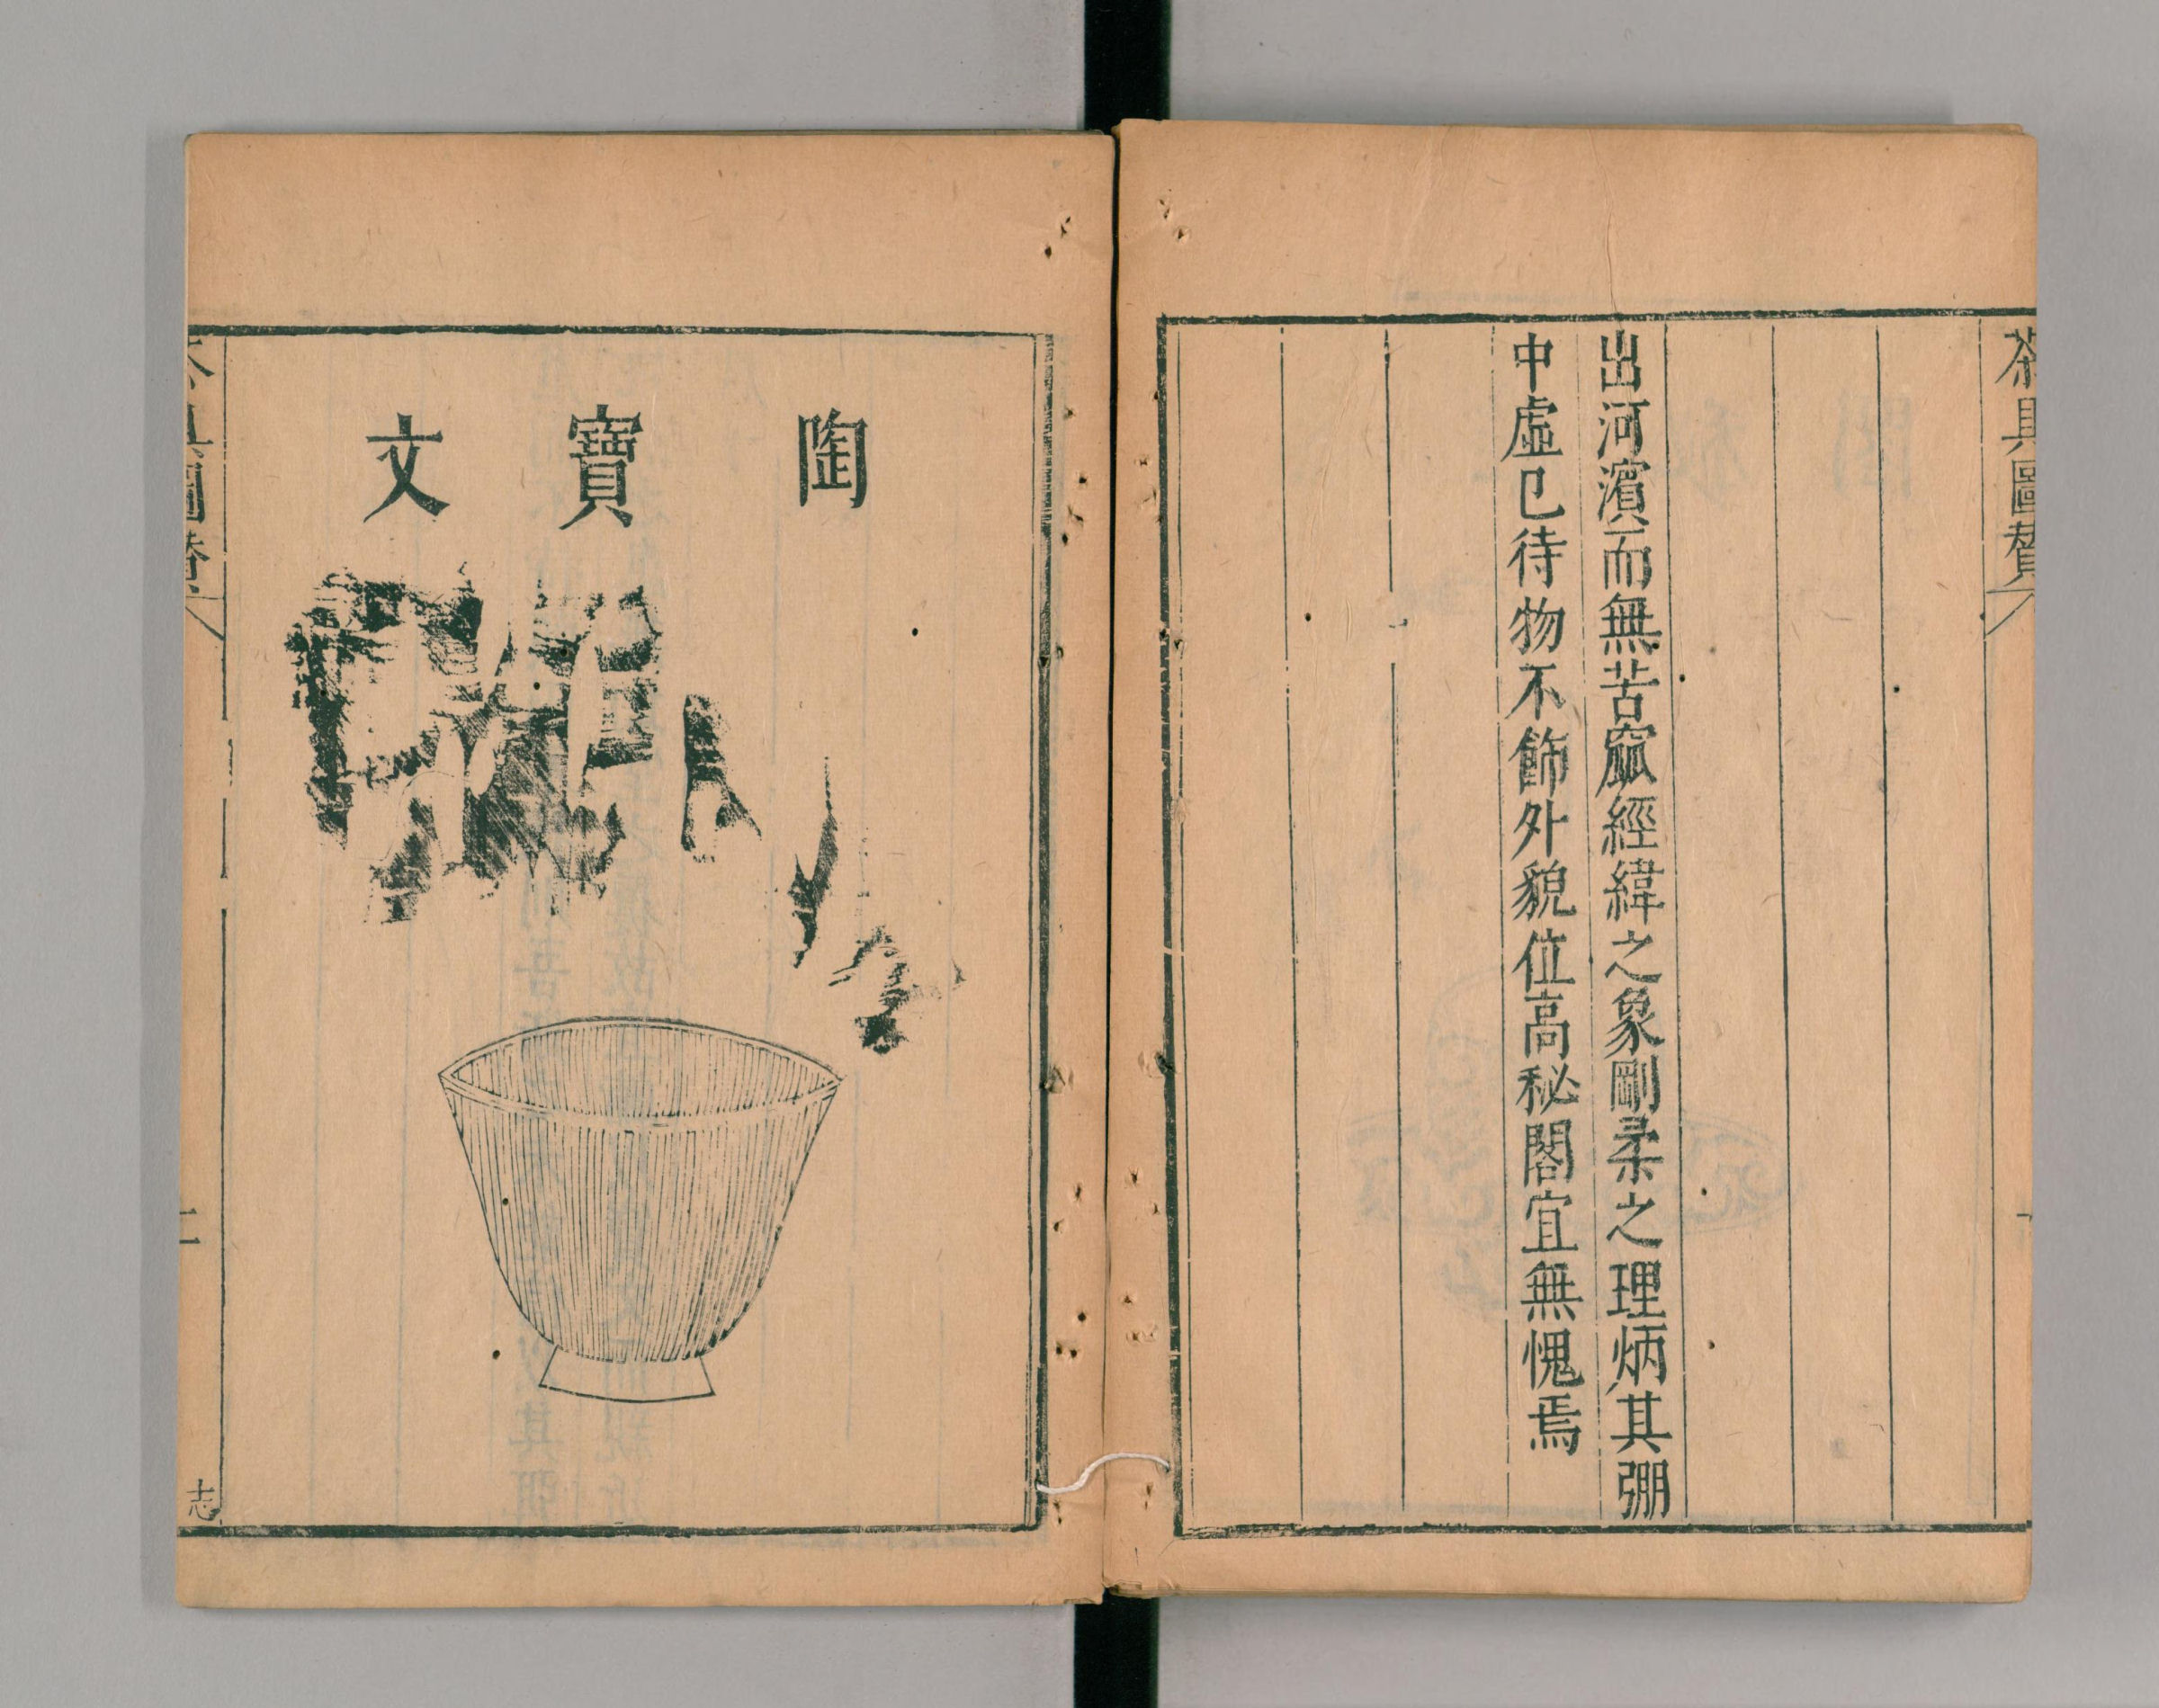 茶具圖贊
出河濱而無苦窳經緯之象剛柔之理炳其弸
中虛已待物不飾外貌位高秘閣宜無愧焉
陶寶文
具圖贊
志